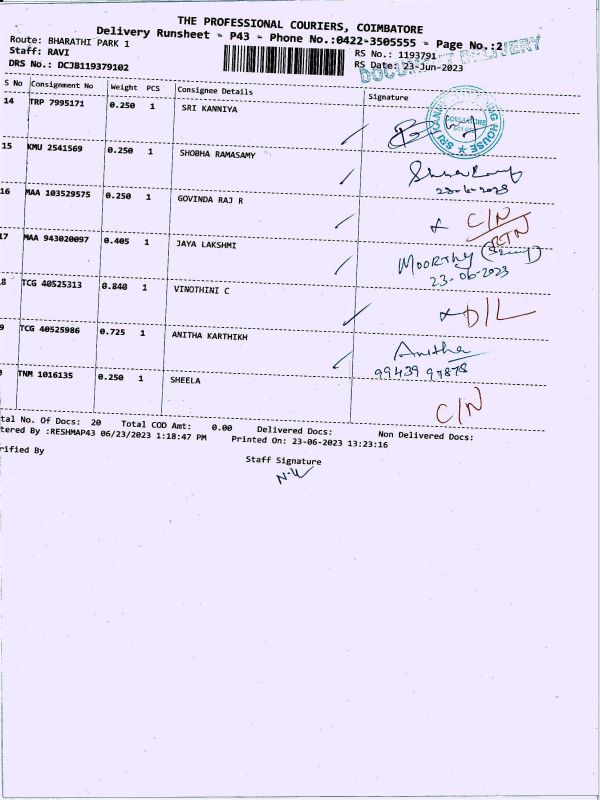 THE PROFESSIONAL COURIERS, COIMBATORE
Delivery Runsheet - P43 - Phone No.:0422-3505555 - Page No.:2
DOCUMENT DELIVERY
Route: BHARATHI PARK 1
RS No.: 1193791
Staff: RAVI
RS Date: 23-Jun-2023
DRS No.: DCJB119379102
S No Consignment No Weight PCS Consignee Details Signature
14 TRP 7995171 0.250 1 SRI KANNIYA
COIMBATORE
15 KMU 2541569 0.250 1 SHOBHA RAMASAMY
16 MAA 103529575 0.250 1 GOVINDA RAJ R C/N
RTN
17 MAA 943020097 0.405 1 JAYA LAKSHMI MOORTHY
23-06-2023
8 TCG 40525313 0.840 1 VINOTHINI C D/L
9 TCG 40525986 0.725 1 ANITHA KARTHIKH Anitha
TNM 1016135 0.250 1 SHEELA C/N
tal No. Of Docs: 20 Total COD Amt: 0.00 Delivered Docs: Non Delivered Docs:
tered By :RESHMAP43 06/23/2023 1:18:47 PM Printed On: 23-06-2023 13:23:16
rified By
Staff Signature